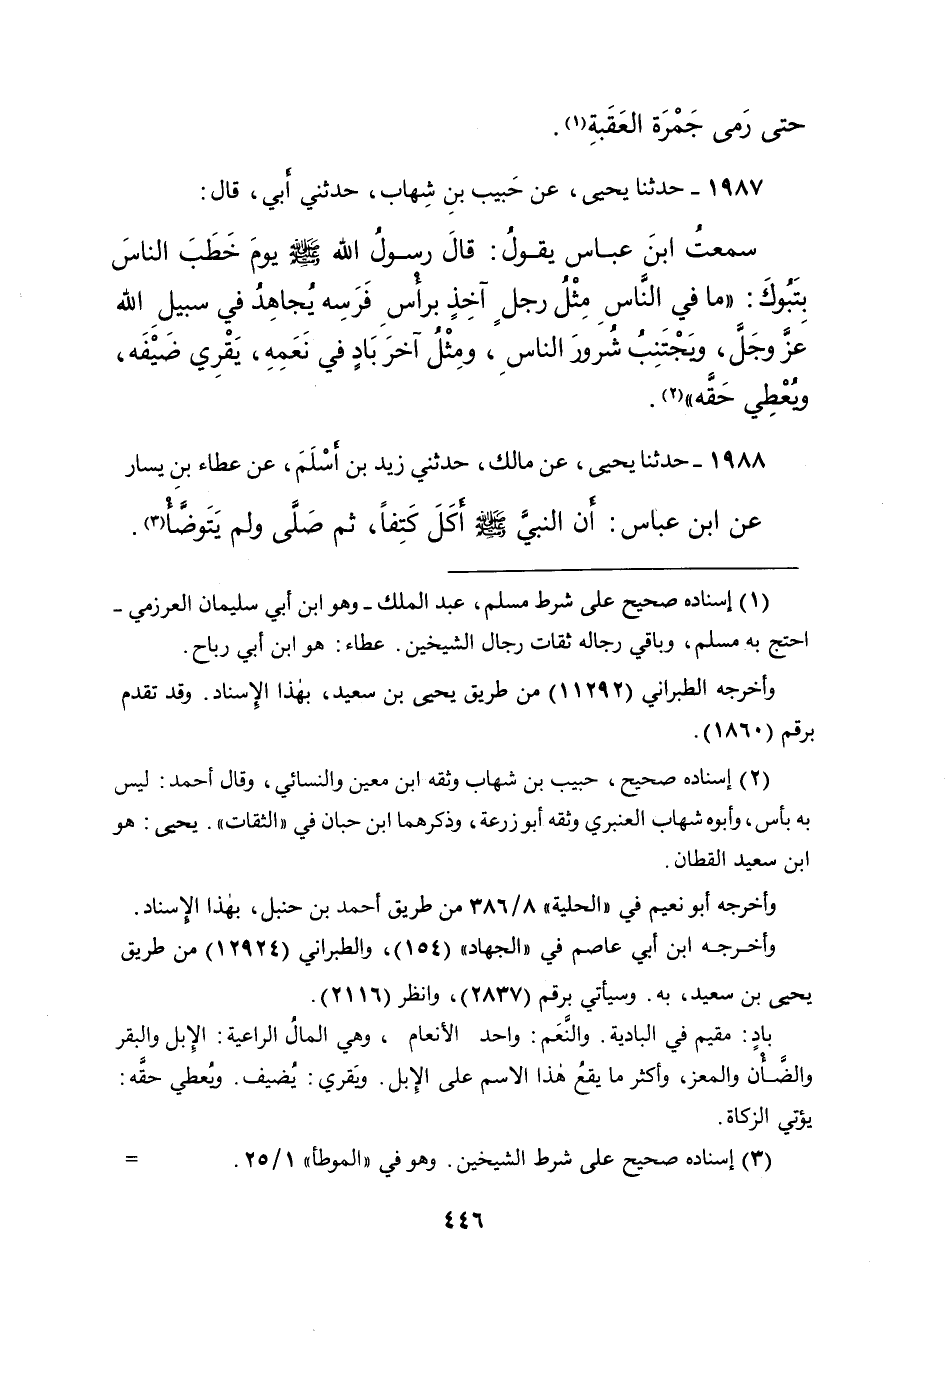 حتى رَمى جَمْرَة العَقَبةِ(١).
١٩٨٧ ـ حدثنا يحيى، عن حَبيب بنِ شِهاب، حدثني أَبي، قال:
سمعتُ ابنَ عباس يقـولُ: قالَ رسـولُ الله ﷺ يومَ خَطَبَ الناسَ
بِتَبُوكَ: «ما في النَّاسِ مِثْلُ رجلٍ آخِذٍ برأْسِ فَرَسِه يُجاهِدُ في سبيلِ الله
عزَّ وجَلَّ، ويَجْتَنِبُ شُرورَ الناسِ، ومِثْلُ آخرَ بَادٍ في نَعَمِهِ، يَقْرِي ضَيْفَه،
ويُعْطِي حَقَّه»(٢).
١٩٨٨ ـ حدثنا يحيى، عن مالك، حدثني زيد بن أَسْلَمَ، عن عطاء بنِ يسار
عن ابن عباس: أَن النبيَّ ﷺ أَكَلَ كَتِفاً، ثم صَلَّى ولم يَتَوضَّأْ(٣).
(١) إسناده صحيح على شرط مسلم، عبد الملك ـ وهو ابن أبي سليمان العرزمي ـ
احتج به مسلم، وباقي رجاله ثقات رجال الشيخين. عطاء: هو ابن أبي رباح.
وأخرجه الطبراني (١١٢٩٢) من طريق يحيى بن سعيد، بهٰذا الإسناد. وقد تقدم
برقم (١٨٦٠).
(٢) إسناده صحيح، حبيب بن شهاب وثقه ابن معين والنسائي، وقال أحمد: ليس
به بأس، وأبوه شهاب العنبري وثقه أبو زرعة، وذكرهما ابن حبان في «الثقات». يحيى: هو
ابن سعيد القطان.
وأخرجه أبو نعيم في «الحلية» ٣٨٦/٨ من طريق أحمد بن حنبل، بهٰذا الإسناد.
وأخـرجـه ابن أبي عاصم في «الجهاد» (١٥٤)، والطبراني (١٢٩٢٤) من طريق
يحيى بن سعيد، به. وسيأتي برقم (٢٨٣٧)، وانظر (٢١١٦).
بادٍ: مقيم في البادية. والنَّعَم: واحد الأنعام، وهي المالُ الراعية: الإبل والبقر
والضَّـأْن والمعز، وأكثر ما يقعُ هٰذا الاسم على الإبل. ويَقري: يُضيف. ويُعطي حقَّه:
يؤتي الزكاة.
(٣) إسناده صحيح على شرط الشيخين. وهو في «الموطأ» ٢٥/١. =
٤٤٦